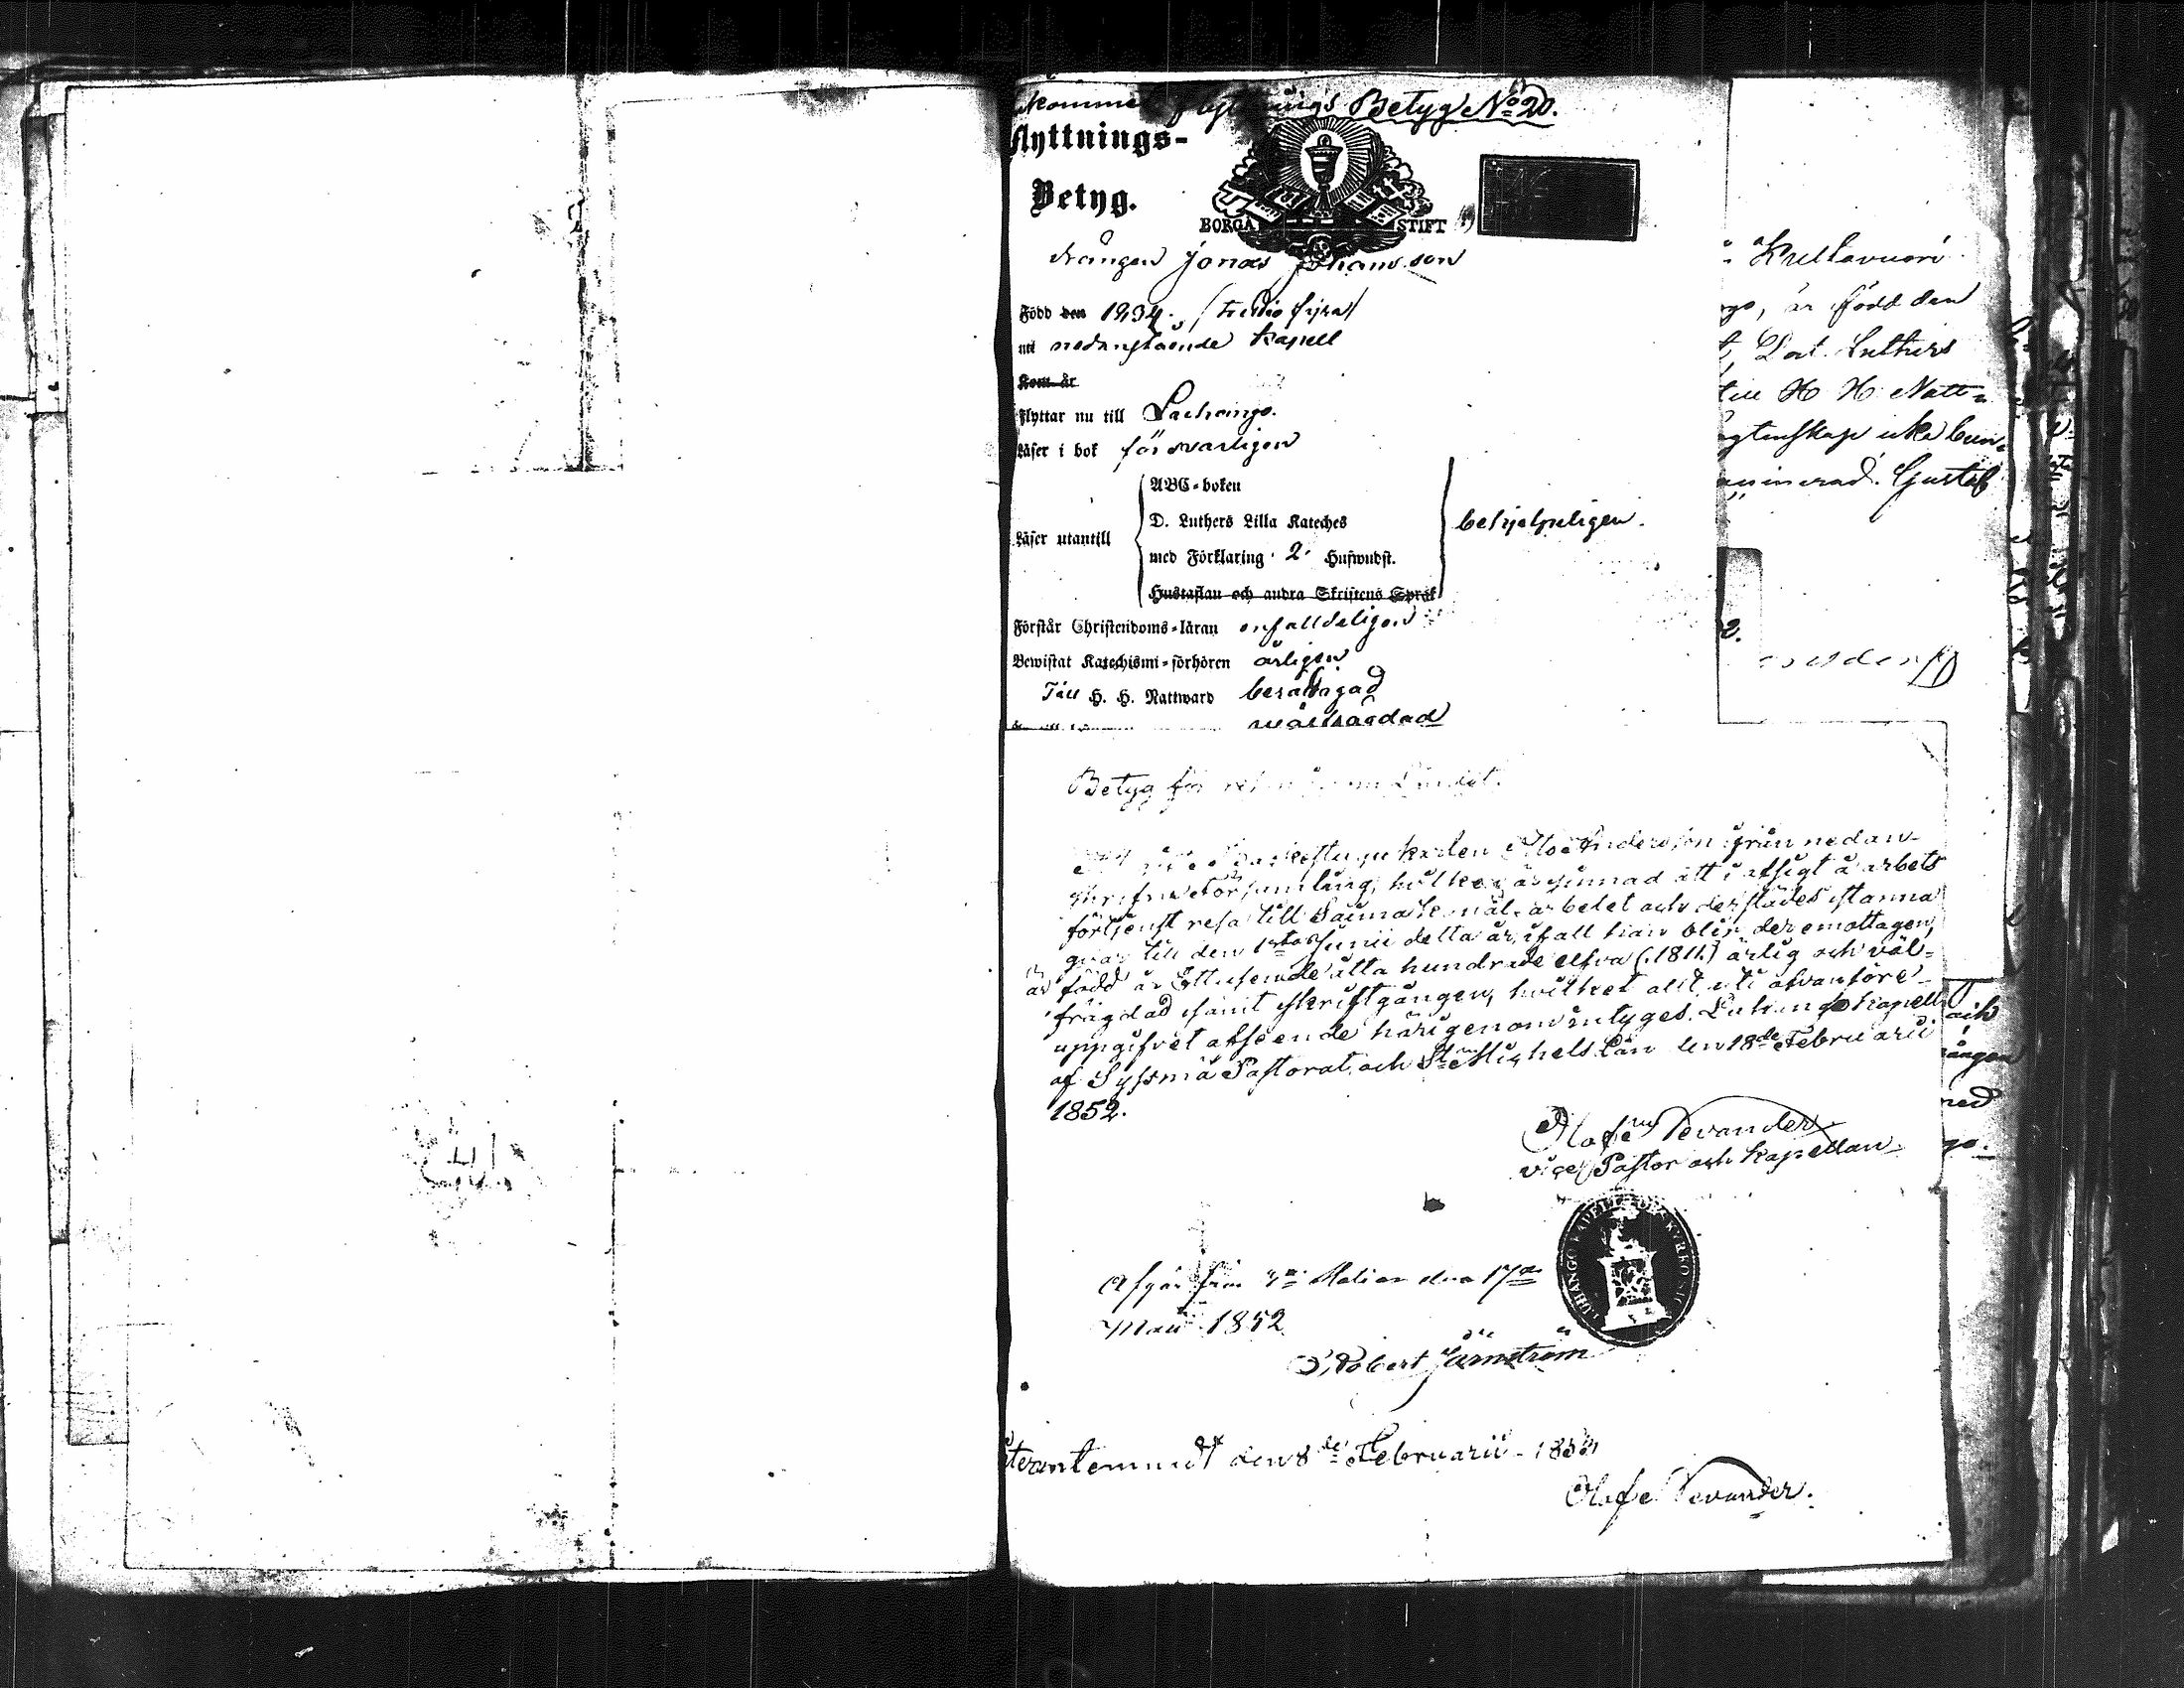 kommet Flyttnings Betyg No 20.
Flyttnings-
Betyg.
BORGÅ STIFT
drängen Jonas Johansson
Född den 1834. (trettio fyra)
uti nedanstående Kapell
Kom år
flyttar nu till Luhango.
Läser i bok försvarligen
ABC-boken
D. Luthers Lilla Kateches
Läser utantill
med Förklaring 2 Hufwudst.
Hustaflan och andra Skriftens Språk
behjelpeligen.
Förstår Christendoms-läran enfalldeligen
Bewistat Katechismi-förhören årligen
Till H. H. Nattward berättigad
wälfrägdad
Krellavuori
go, är född den
t, Dort. Luthers
till H H Natt=
ägtenskap icke bun=
Gustaf
2.
Betyg för
karlen Andersson från nedan-
skrifne Församling, hvilken är sinnad att i afsigt å arbets
förtjenst resa till Saima kanal-arbetet och derstädes stanna
qvar till den 1sta Junii detta år, ifall han blir der emottagen,
är född år Ettusende åtta hundrade elfva (:1811:) ärlig och väl=
frägdad samt skriftgången, hvilket allt uti ofvanföre-
uppgifvet afseende härigenom intygas. Luhango Kapell
af Sysmä Pastorat och St Michels Län den 18de Februarii
1852.
Olof Levander
vice Pastor och Kapellan
LUHANGO KAPELL
Afgår från den 17de
Maii 1852
Robert Järnström
Återantemnadt den 8de Februarii - 1853
Olof Levander.
och
ången
med
go.